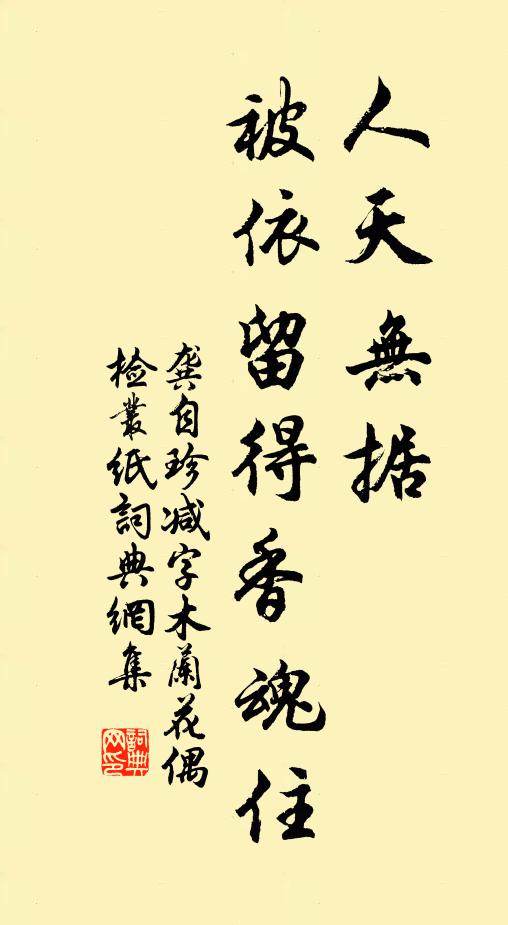 人天無据
被依留得香魂住
龔自珍减字木蘭花偶
檢叢紙詞典網集
詞典
网印